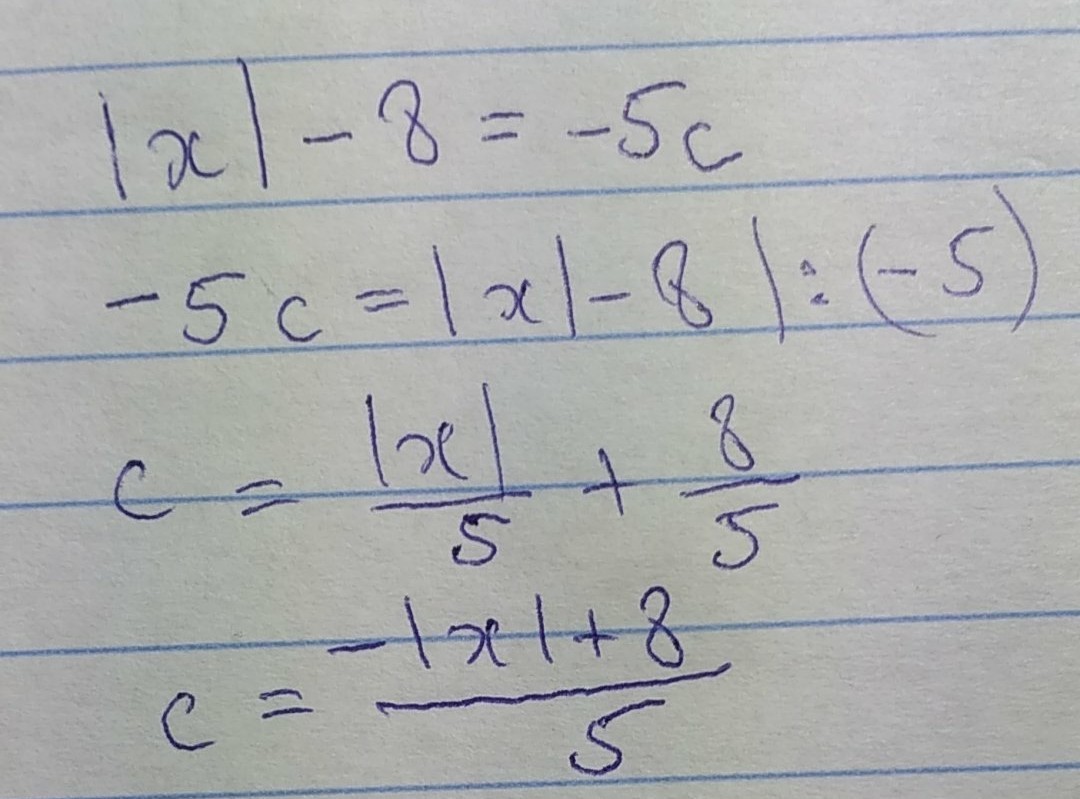 |x| - 8 = -5c
-5c = |x| - 8 | : (-5)
c = |x|/5 + 8/5
c = -|x| + 8/5